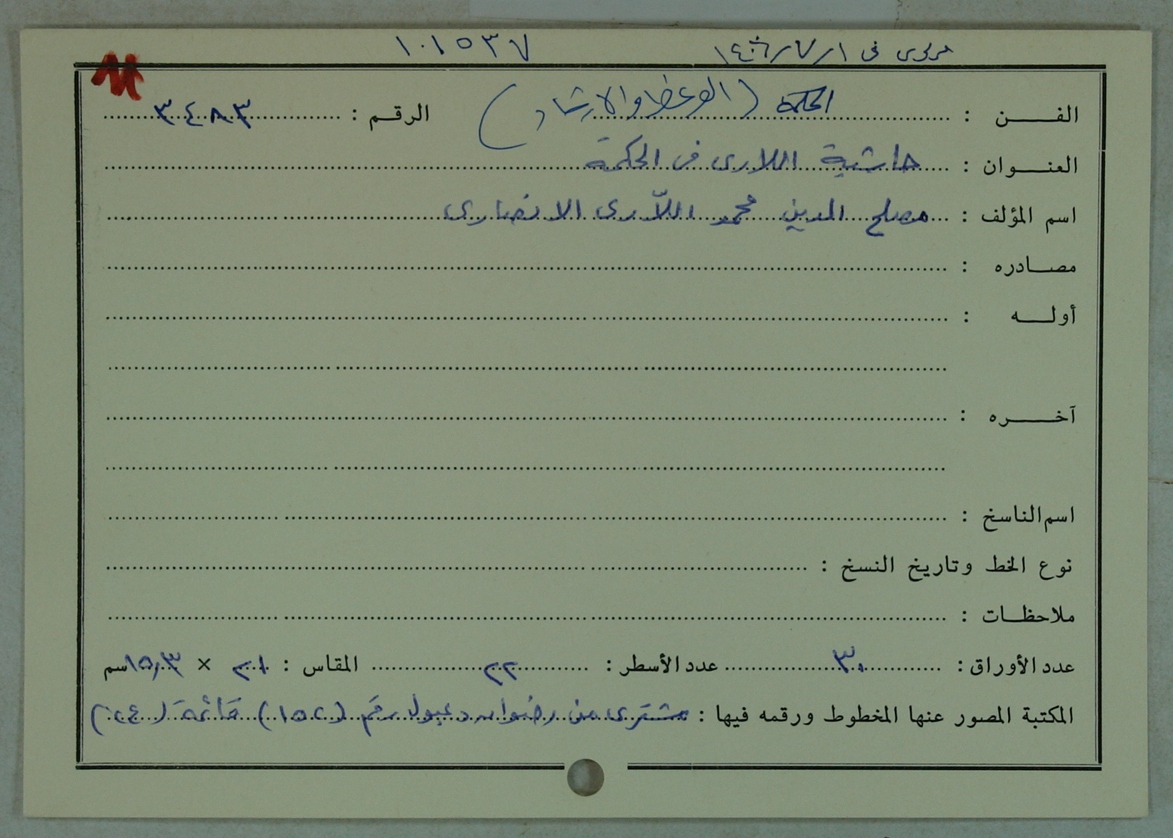 مركزى فى ١/٧/١٤٠٦ ١٠١٥٣٧
الفن : الحكمة (الوعظ والارشاد) الرقم : ٣٤٨٣
العنوان : حاشية اللارى فى الحكمة
اسم المؤلف : مصلح الدين محمد اللاّرى الانصارى
مصادره :
أوله :
آخره :
اسم الناسخ :
نوع الخط وتاريخ النسخ :
ملاحظات :
عدد الأوراق : ٣٠ عدد الأسطر : ٢٢ المقاس : ٢١ × ١٥,٣ سم
المكتبة المصور عنها المخطوط ورقمه فيها : مشترى من رضوان دعبول رقم (١٥٢) قائمة (٢٤)